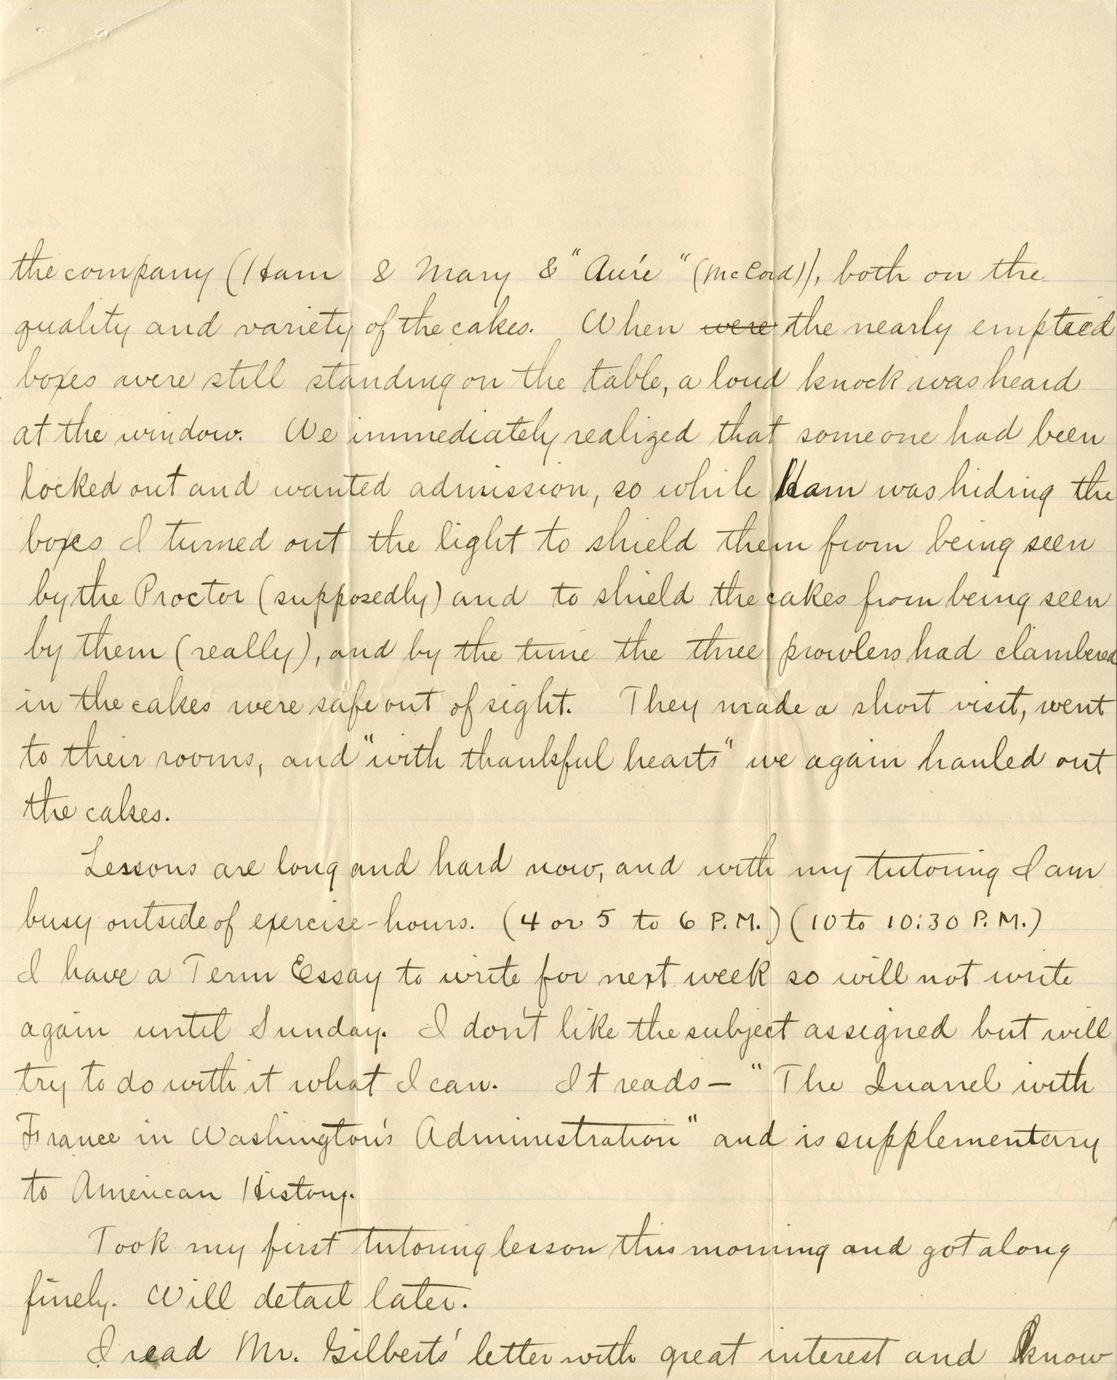 the company (Ham & Mary & "Aure" (McCord)), both on the
quality and variety of the cakes. When were the nearly emptied
boxes were still standing on the table, a loud knock was heard
at the window. We immediately realized that someone had been
locked out and wanted admission, so while Ham was hiding the
boxes I turned out the light to shield them from being seen
by the Proctor (supposedly) and to shield the cakes from being seen
by them (really), and by the time the three prowlers had clambered
in the cakes were safe out of sight. They made a short visit, went
to their rooms, and "with thankful hearts" we again hauled out
the cakes.
Lessons are long and hard now, and with my tutoring I am
busy outside of exercise-hours. (4 or 5 to 6 P.M.) (10 to 10:30 P.M.)
I have a Term Essay to write for next week so will not write
again until Sunday. I don't like the subject assigned but will
try to do with it what I can. It reads — "The Quarrel with
France in Washington's Administration" and is supplementary
to American History.
Took my first tutoring lesson this morning and got along
finely. Will detail later.
I read Mr. Gilberts' letter with great interest and know